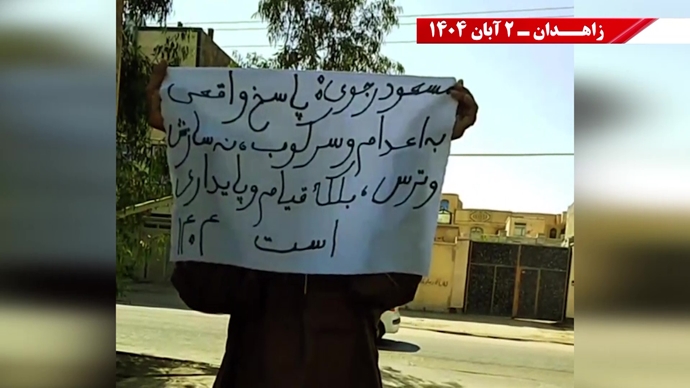 زاهدان ــ ۲ آبان ۱۴۰۴
مسعود رجوی: پاسخ واقعی
به اعدام و سرکوب، نه سازش
و ترس، بلکه قیام و پایداری
است ۱۴۰۴